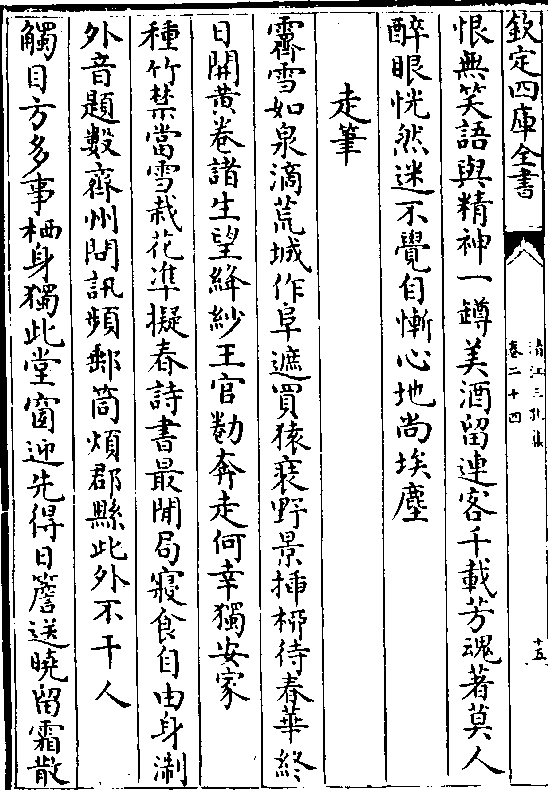 欽定四庫全書
清江三孔集
卷二十四
十五
恨無笑語與精神一罇美酒留連客千載芳魂著莫人
醉眼恍然迷不覺自慚心地尚埃塵
走筆
霽雪如泉滴荒城作阜遮買猿裒野景插栁待春華終
日開黄卷諸生望絳紗王官勌奔走何幸獨安家
種竹禁當雪栽花凖擬春詩書最閒局寢食自由身淛
外音題數齊州問訊頻郵筒煩郡縣此外不干人
觸目方多事栖身獨此堂窗迎先得日簷送曉留霜散